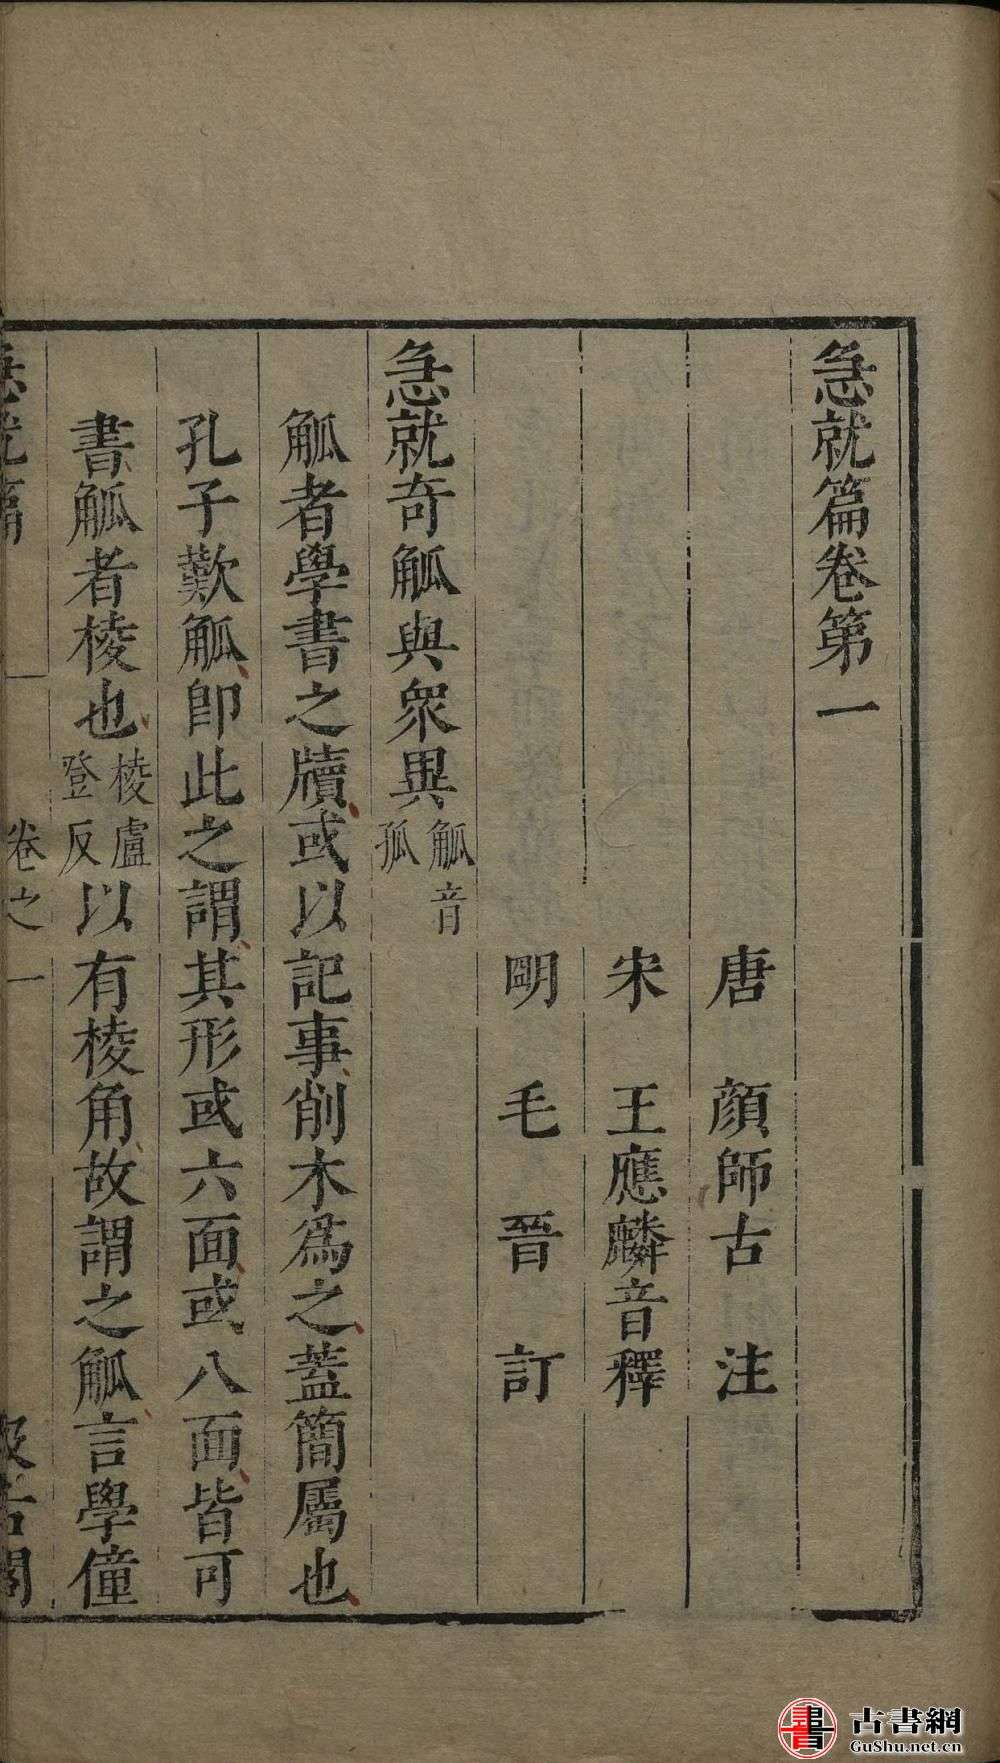 急就篇卷第一
唐　顔師古　注
宋　王應麟音釋
明　毛　晉　訂
急就奇觚與衆異觚音孤
觚者學書之牘或以記事削木爲之蓋簡屬也
孔子歎觚即此之謂其形或六面或八面皆可
書觚者棱也棱盧登反以有棱角故謂之觚言學僮
急就篇　卷之一　汲古閣
書 古書網
GuShu.net.cn